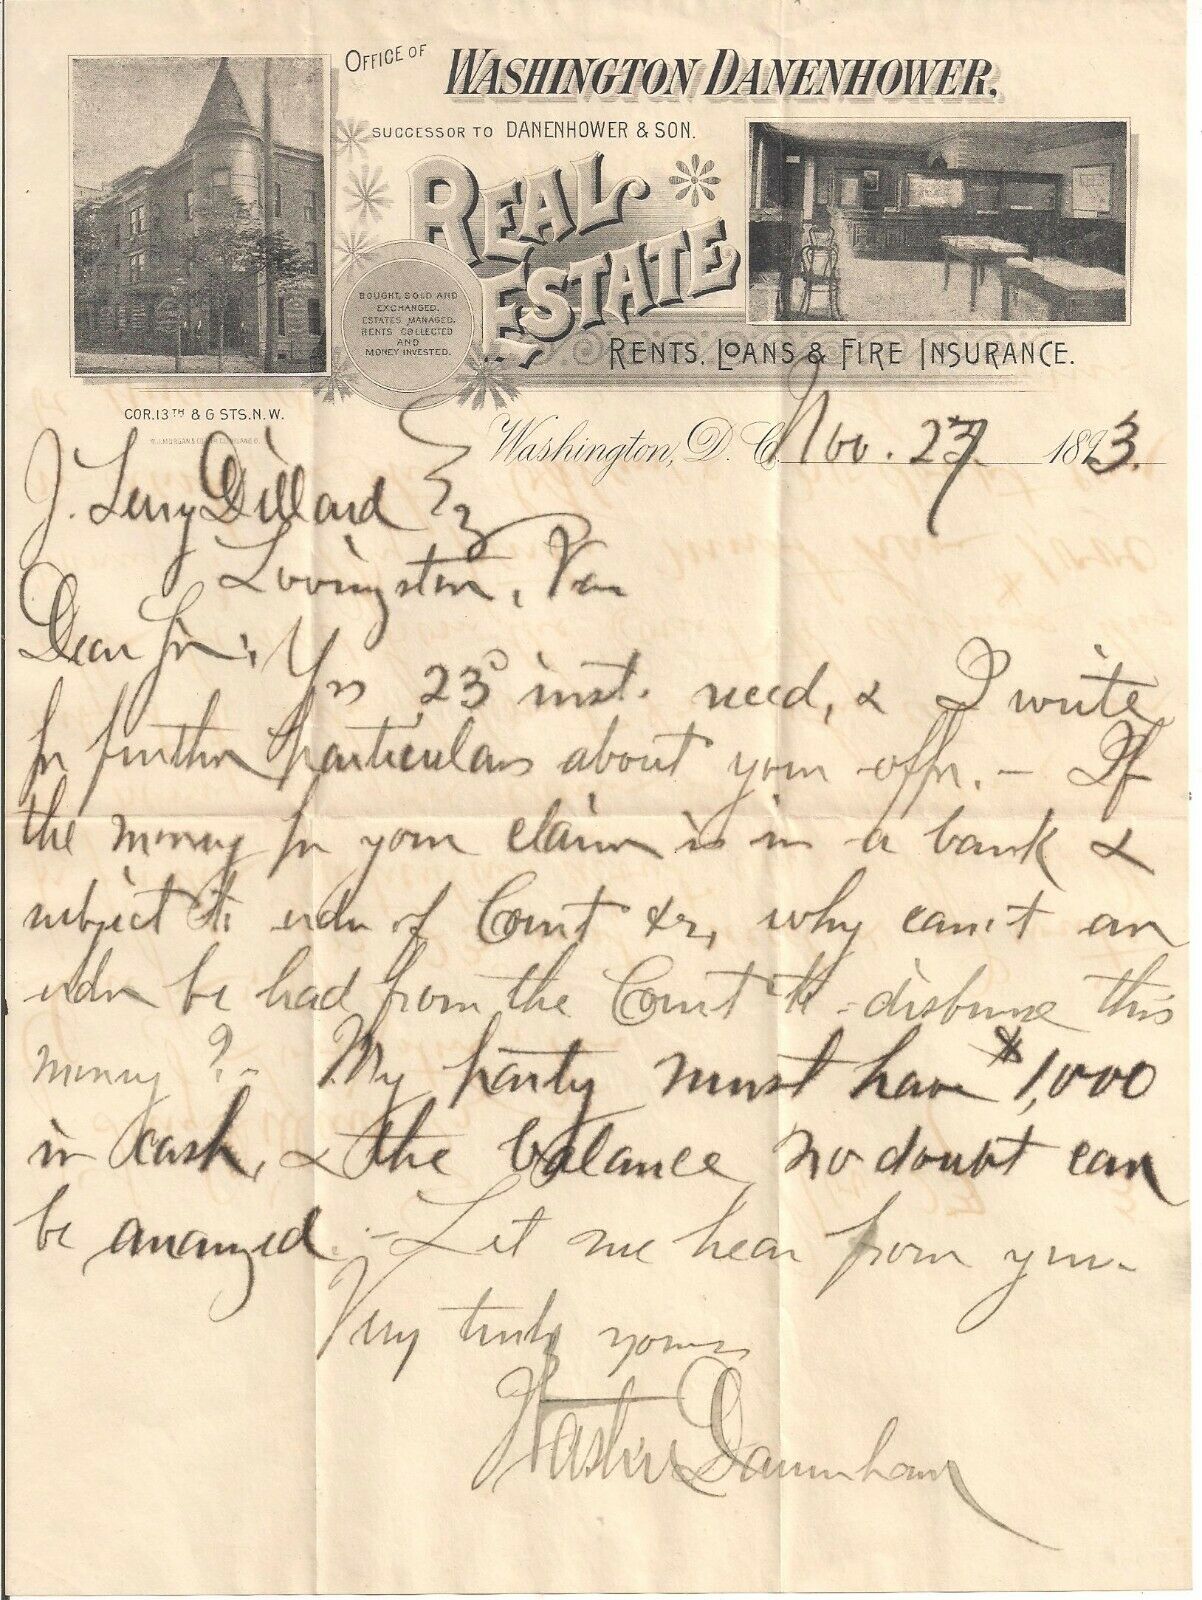 OFFICE OF WASHINGTON DANENHOWER,
SUCCESSOR TO DANENHOWER & SON.
REAL
ESTATE
BOUGHT, SOLD AND
EXCHANGED.
ESTATES MANAGED.
RENTS COLLECTED
AND
MONEY INVESTED.
RENTS, LOANS & FIRE INSURANCE.
COR. 13TH & G STS. N.W.
Washington, D. C. Nov. 27 1893.
J. Dillard Esq
Lovingston, Va
Dear Sir:, Yrs 23d inst. recd, & I write
for further particulars about your offer. - If
the money for your claim is in a bank &
subject to order of Court &c, why can't an
order be had from the Court to disburse this
money? - My party must have $1,000
in cash, & the balance no doubt can
be arranged. - Let me hear from you. -
Very truly yours
Wash'n Danenhower